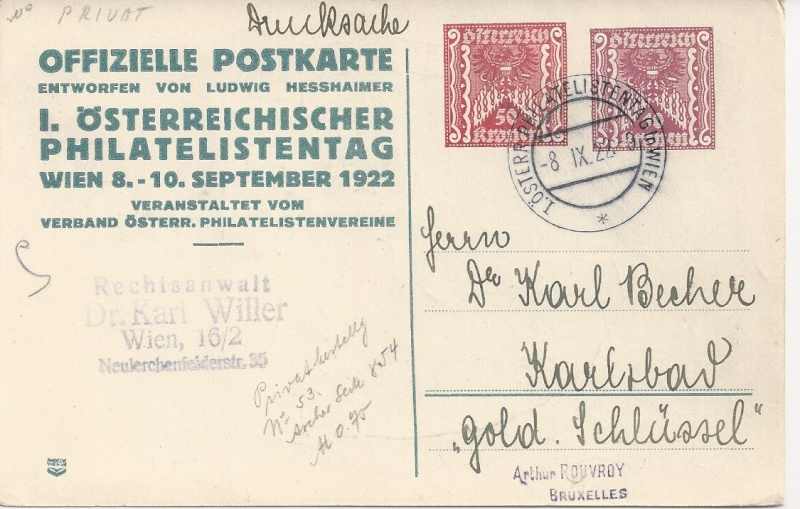 No PRIVAT
Drucksache
OFFIZIELLE POSTKARTE
ENTWORFEN VON LUDWIG HESSHAIMER
I. ÖSTERREICHISCHER
PHILATELISTENTAG
WIEN 8.-10. SEPTEMBER 1922
VERANSTALTET VOM
VERBAND ÖSTERR. PHILATELISTENVEREINE
österreich
50
Kronen
österreich
I. ÖSTERR. PHILATELISTENTAG in WIEN
-8 IX. 22
*
Rechtsanwalt
Dr. Karl Willer
Wien, 16/2
Neulerchenfelderstr. 35
Privatbestellg
No 53.
Ascher Seite 854
M 0.75
Herrn
Dr Karl Becher
Karlsbad
"gold. Schlüssel"
Arthur ROUVROY
BRUXELLES